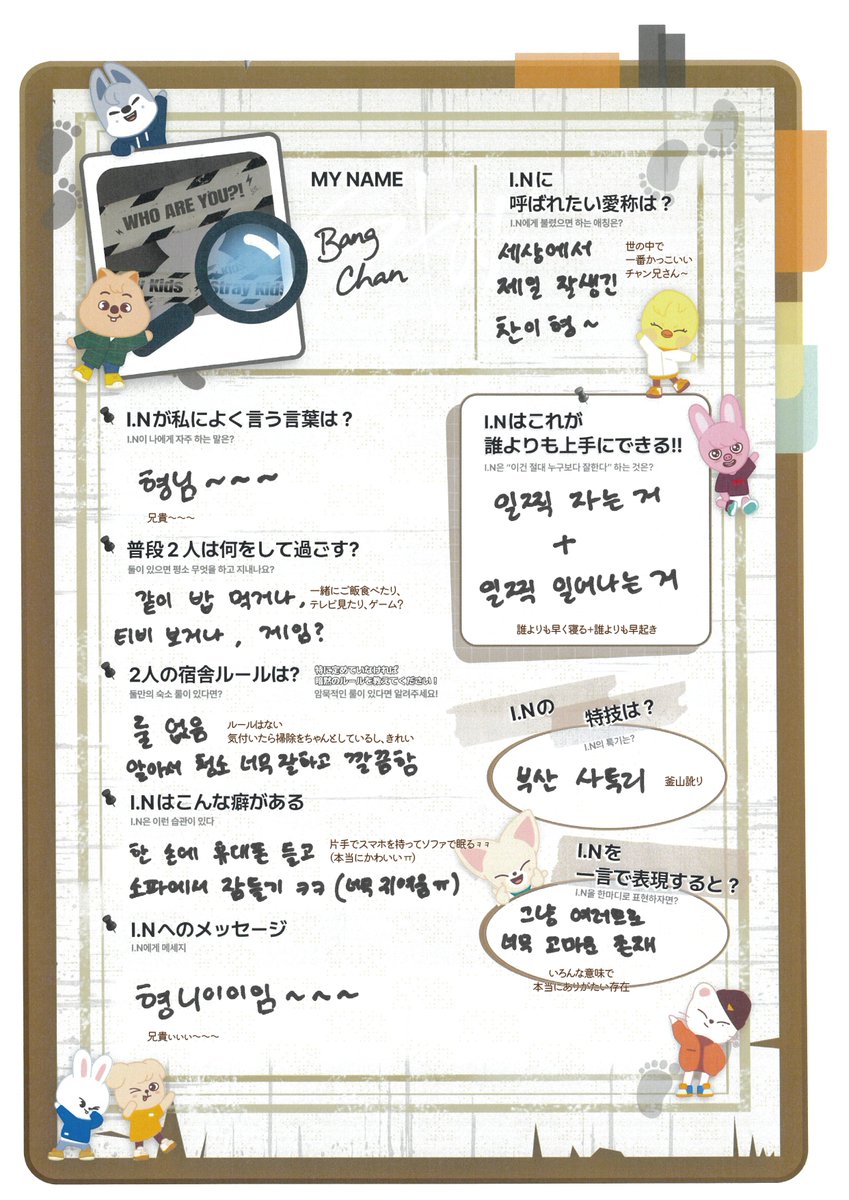 WHO ARE YOU?!
Kids
Stray Kids
MY NAME
Bang
Chan
I.Nに
呼ばれたい愛称は？
I.N에게 불렸으면 하는 애칭은?
세상에서
제일 잘생긴
찬이 형~
世の中で
一番かっこいい
チャン兄さん～
I.Nが私によく言う言葉は？
I.N이 나에게 자주 하는 말은?
형님~~~
兄貴～～～
普段２人は何をして過ごす?
둘이 있으면 평소 무엇을 하고 지내나요?
같이 밥 먹거나,
티비 보거나, 게임?
一緒にご飯食べたり、
テレビ見たり、ゲーム？
2人の宿舎ルールは?
特に定めていなければ
暗黙のルールを教えてください！
둘만의 숙소 룰이 있다면?
암묵적인 룰이 있다면 알려주세요!
룰 없음
ルールはない
気付いたら掃除をちゃんとしているし、きれい
알아서 청소 너무 잘하고 깔끔함
I.Nはこんな癖がある
I.N은 이런 습관이 있다
한 손에 휴대폰 들고
소파에서 잠들기 ㅋㅋ (너무 귀여움ㅠ)
片手でスマホを持ってソファで眠るㅋㅋ
（本当にかわいいㅠ）
I.Nへのメッセージ
I.N에게 메세지
형니이이임~~~
兄貴ぃぃぃ～～～
I.Nはこれが
誰よりも上手にできる!!
I.N은 “이건 절대 누구보다 잘한다” 하는 것은?
일찍 자는 거
+
일찍 일어나는 거
誰よりも早く寝る+誰よりも早起き
I.Nの 特技は？
I.N의 특기는?
부산 사투리
釜山訛り
I.Nを
一言で表現すると？
I.N을 한마디로 표현하자면?
그냥 여러모로
너무 고마운 존재
いろんな意味で
本当にありがたい存在